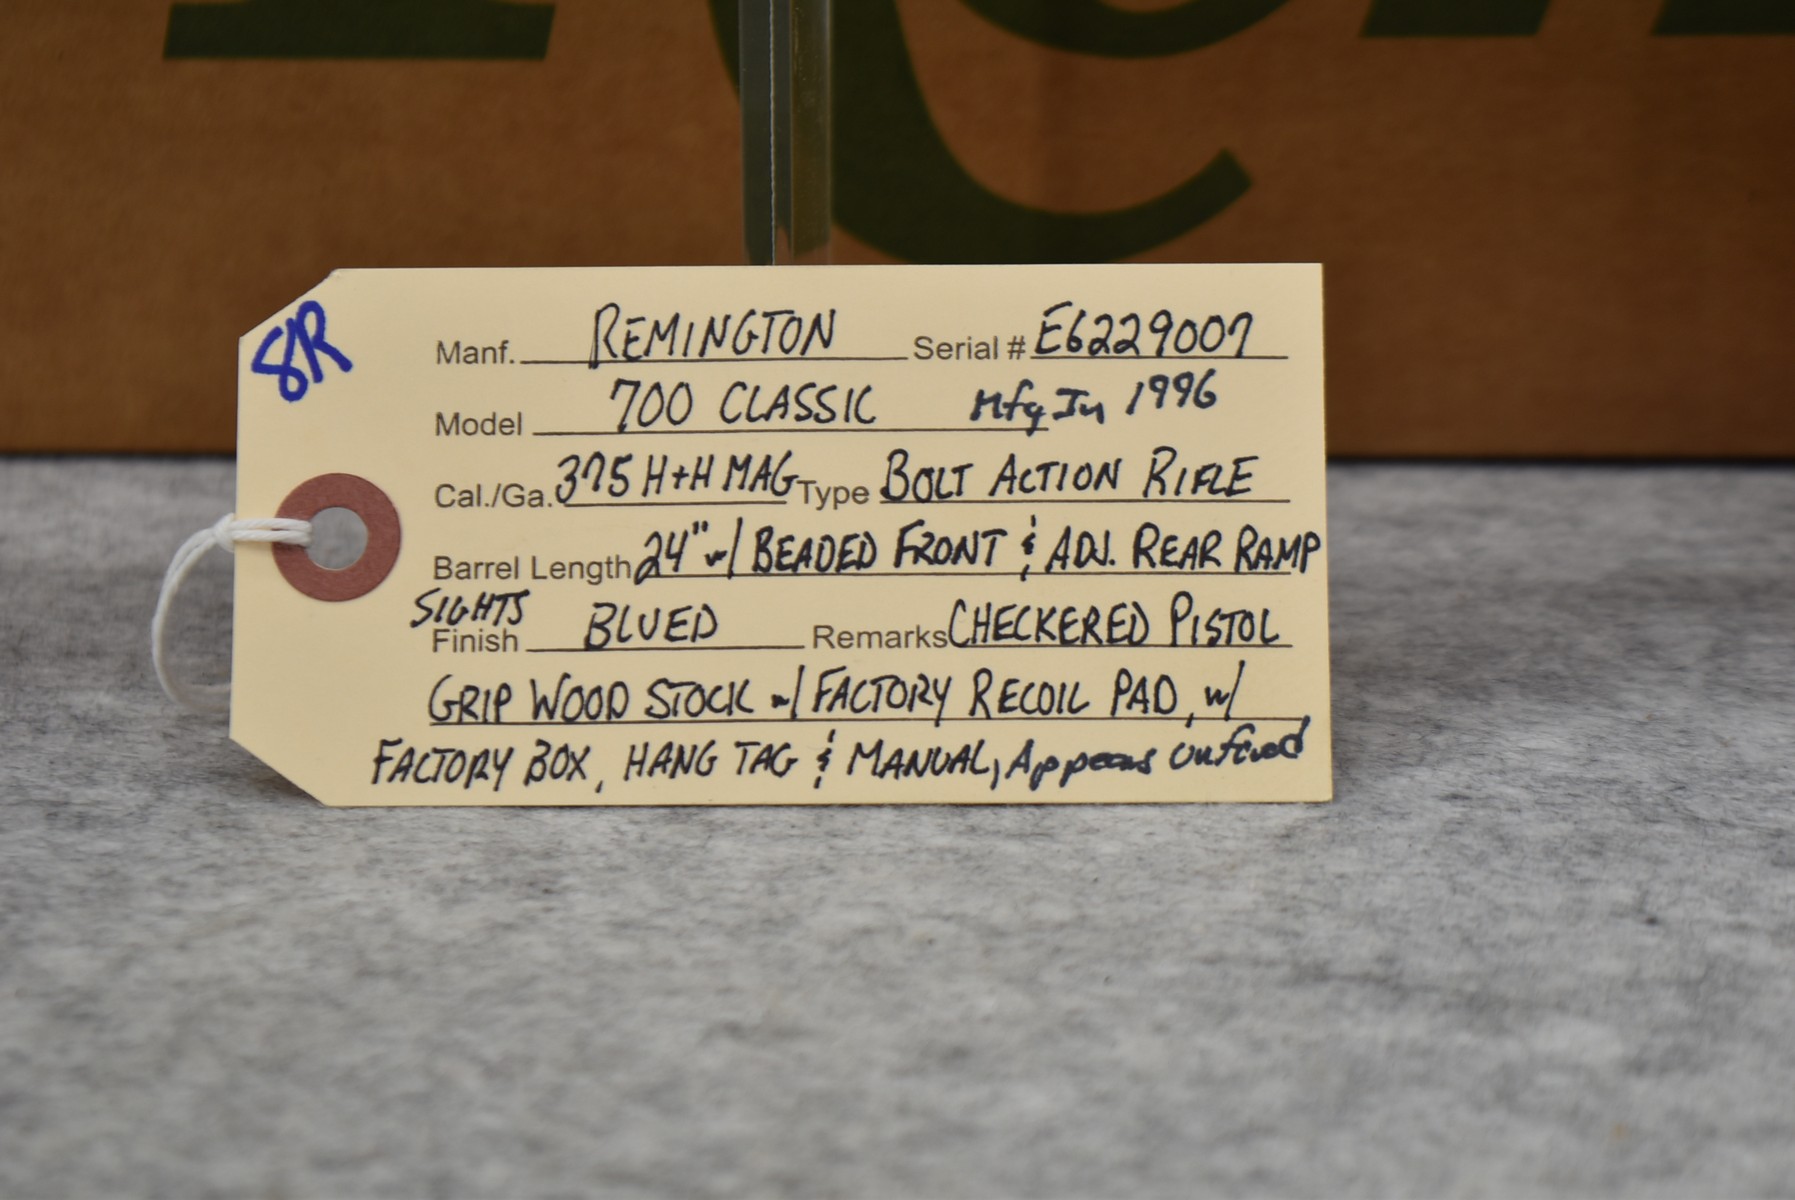 8R
Manf. REMINGTON Serial # E6229007
Model 700 CLASSIC Mfg In 1996
Cal./Ga. 375 H+H MAG Type BOLT ACTION RIFLE
Barrel Length 24" w/ BEADED FRONT & ADJ. REAR RAMP
SIGHTS
Finish BLUED Remarks CHECKERED PISTOL
GRIP WOOD STOCK w/ FACTORY RECOIL PAD, w/
FACTORY BOX, HANG TAG & MANUAL, Appears unfired